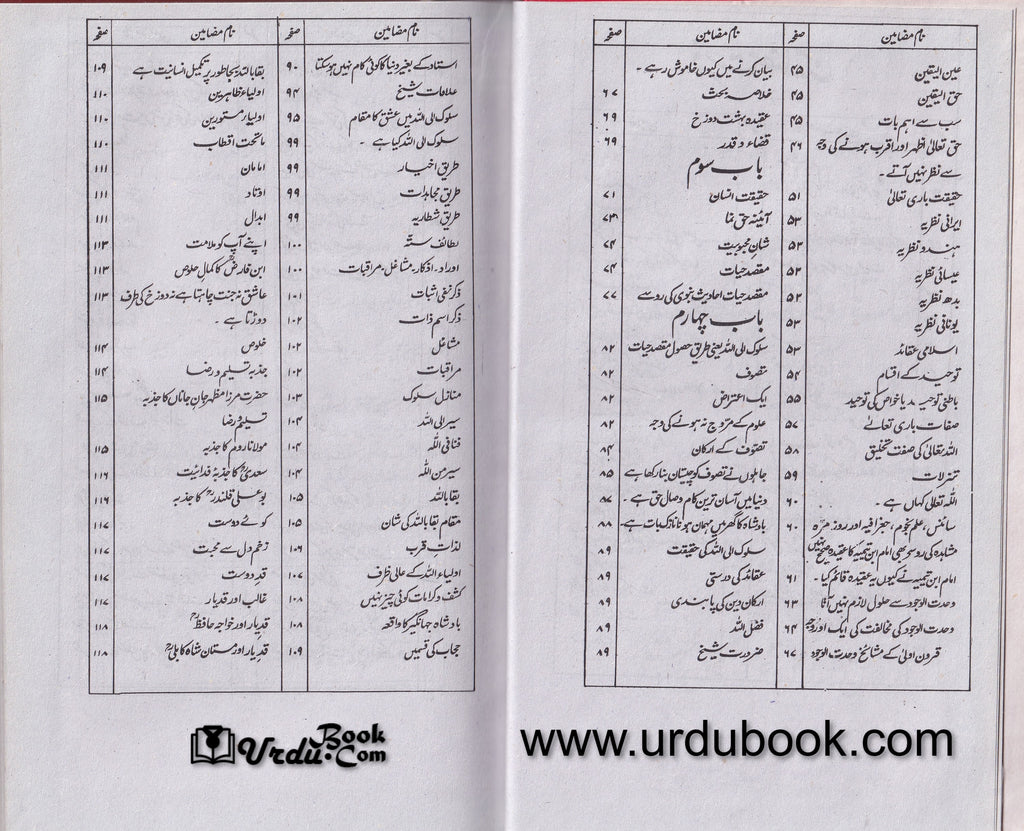 نام مضامین صفحہ
عین الیقین ۴۵
حق الیقین ۴۵
سب سے اہم بات ۴۵
حق تعالیٰ اظہر اور اقرب ہونے کی وجہ ۴۶
سے نظر نہیں آتے۔
حقیقت باری تعالیٰ ۵۱
ایرانی نظریہ ۵۳
ہندو نظریہ ۵۳
عیسائی نظریہ ۵۲
بدھ نظریہ ۵۲
یونانی نظریہ ۵۳
اسلامی عقائد ۵۳
توحید کے اقسام ۵۴
باطنی توحید یا خواص کی توحید ۵۵
صفات باری تعالےٰ ۵۷
اللہ تعالیٰ کی صفت تخلیق ۵۸
تنزلات ۵۹
اللہ تعالیٰ کہاں ہے۔ ۶۰
سائنس، علم نجوم، جغرافیہ اور روز مرّہ ۶۰
مشاہدہ کی رو سے بھی امام ابن تیمیہ کا عقیدہ صحیح نہیں
امام ابن تیمیہ نے کیوں یہ عقیدہ قائم کیا۔ ۶۱
وحدت الوجود سے حلول لازم نہیں آتا ۶۳
وحدت الوجود کی مخالفت کی ایک اور وجہ ۶۴
قرون اولیٰ کے مشائخ وحدت الوجود ۶۷
نام مضامین صفحہ
بیان کرنے میں کیوں خاموش رہے۔
خلاصہ بحث ۶۷
عقیدہ بہشت دوزخ ۶۹
قضاء و قدر ۶۹
باب سوم
حقیقت انسان ۷۱
آئینہ حق نما ۷۳
شان محبوبیت ۷۴
مقصد حیات ۷۴
مقصد حیات احادیث نبوی کی رو سے ۷۷
باب چہارم
سلوک الی اللہ یعنی طریق حصول مقصد حیات ۸۲
تصوف ۸۲
ایک اعتراض ۸۲
علوم کے مروّج نہ ہونے کی وجہ ۸۲
تصوّف کے ارکان ۸۴
جاہلوں نے تصوف کو چیستان بنا رکھا ہے ۸۵
دنیا میں آسان ترین کام وصال حق ہے۔ ۸۷
بادشاہ کا گھر میں مہمان ہونا نازک بات ہے۔ ۸۸
سلوک الی اللہ کی حقیقت ۸۹
عقائد کی درستی ۸۹
ارکان دین کی پابندی ۸۹
فضل اللہ ۸۹
ضرورت شیخ ۸۹
نام مضامین صفحہ
استاد کے بغیر دنیا کا کوئی کام نہیں ہو سکتا ۹۰
علامات شیخ ۹۴
سلوک الی اللہ میں عشق کا مقام ۹۵
سلوک الی اللہ کیا ہے۔ ۹۹
طریق اخیار ۹۹
طریق مجاہدات ۹۹
طریق شطاریہ ۹۹
لطائف ستّہ ۱۰۰
اوراد۔ اذکار۔ مشاغل۔ مراقبات ۱۰۰
ذکر نفی اثبات ۱۰۱
ذکر اسم ذات ۱۰۲
مشاغل ۱۰۲
مراقبات ۱۰۲
منازل سلوک ۱۰۳
سیر الی اللہ ۱۰۴
فنا فی اللہ ۱۰۴
سیر من اللہ ۱۰۴
بقا باللہ ۱۰۵
مقام بقا باللہ کی شان ۱۰۵
لذات قرب ۱۰۶
اولیاء اللہ کے عالی ظرف ۱۰۷
کشف و کرامات کوئی چیز نہیں ۱۰۸
بادشاہ جہانگیر کا واقعہ ۱۰۸
حجاب کی قسمیں ۱۰۹
نام مضامین صفحہ
بقا باللہ بجا طور پر تکمیل انسانیت ہے ۱۰۹
اولیاء ظاہرین ۱۱۰
اولیاء مستورین ۱۱۰
ماتحت اقطاب ۱۱۰
امامان ۱۱۱
اوتاد ۱۱۱
ابدال ۱۱۱
اپنے آپ کو ملامت ۱۱۳
ابن فارضؒ کا کمال خلوص ۱۱۳
عاشق نہ جنت چاہتا ہے نہ دوزخ کی طرف ۱۱۳
دوڑتا ہے۔
خلوص ۱۱۴
جذبہ تسلیم و رضا ۱۱۴
حضرت مرزا مظہر جان جاناں کا جذبہ ۱۱۵
تسلیم و رضا
مولانا روم کا جذبہ ۱۱۵
سعدیؒ کا جذبہ فدائیت ۱۱۶
بو علی قلندرؒ کا جذبہ ۱۱۶
کوئے دوست ۱۱۷
زخم دل سے محبت ۱۱۷
قد دوست ۱۱۷
غالب اور قد یار ۱۱۷
قد یار اور خواجہ حافظؒ ۱۱۸
قد یار اور مستان شاہ کابلیؒ ۱۱۸
UrduBook.Com
www.urdubook.com